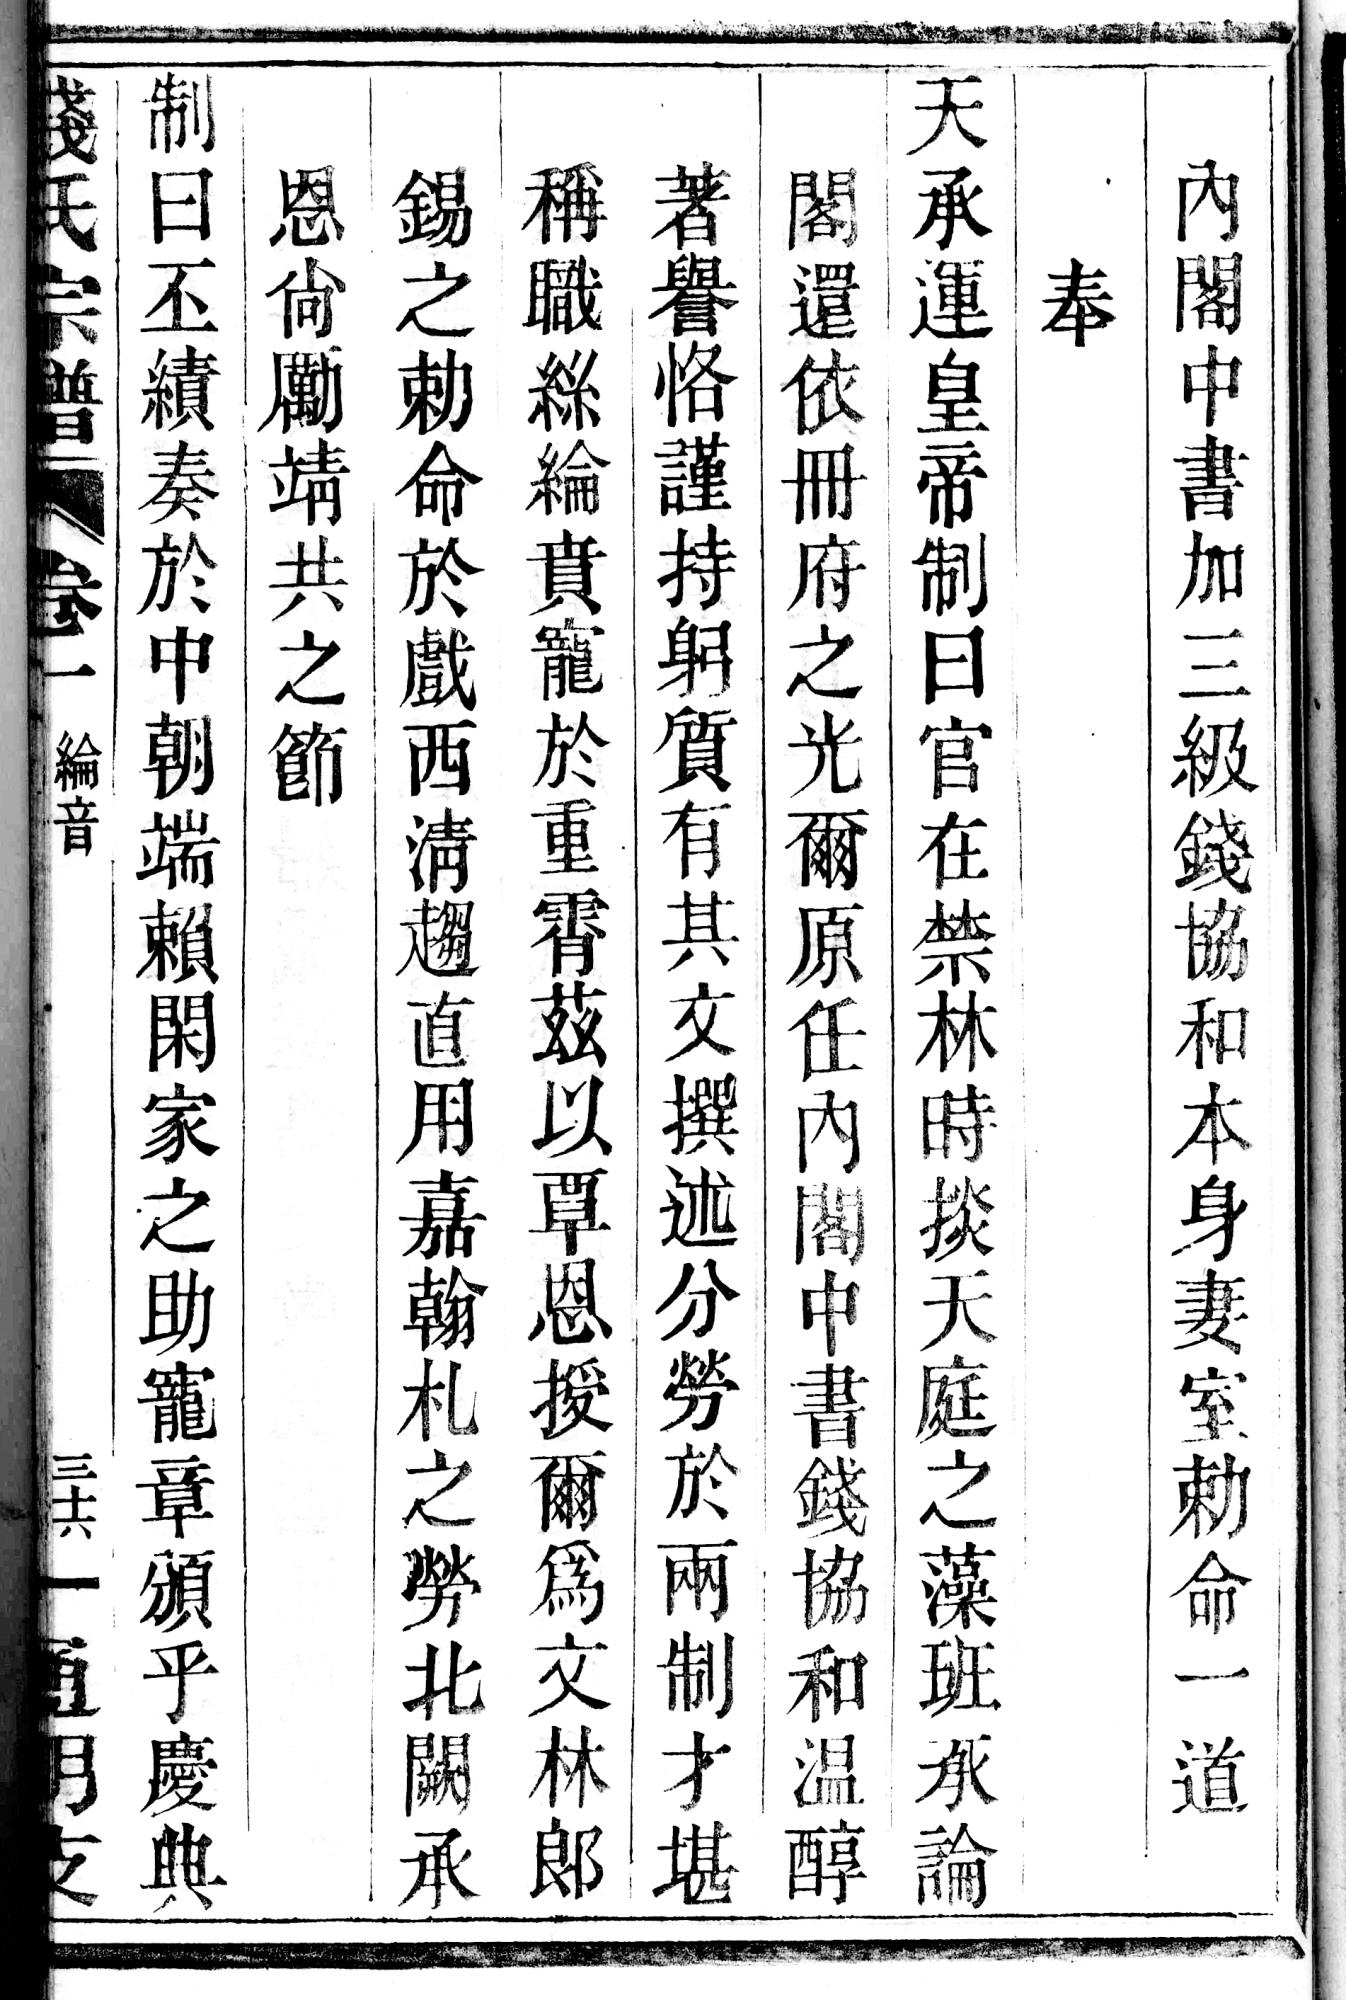 內閣中書加三級錢協和本身妻室勅命一道
奉
天承運皇帝制曰官在禁林時掞天庭之藻班承論
閣還依冊府之光爾原任內閣中書錢協和温醇
著譽恪謹持躬質有其文撰述分勞於兩制才堪
稱職絲綸賁寵於重霄茲以覃恩授爾爲文林郎
錫之勅命於戲西清趨直用嘉翰札之勞北闕承
恩尙勵靖共之節
制曰丕績奏於中朝端賴閑家之助寵章頒乎慶典
錢氏宗譜 卷一 綸音 三十六 通明支